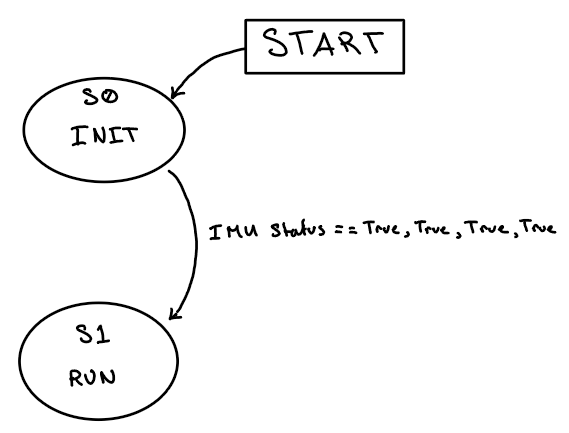 START
S0
INIT
IMU Status == True, True, True, True
S1
RUN